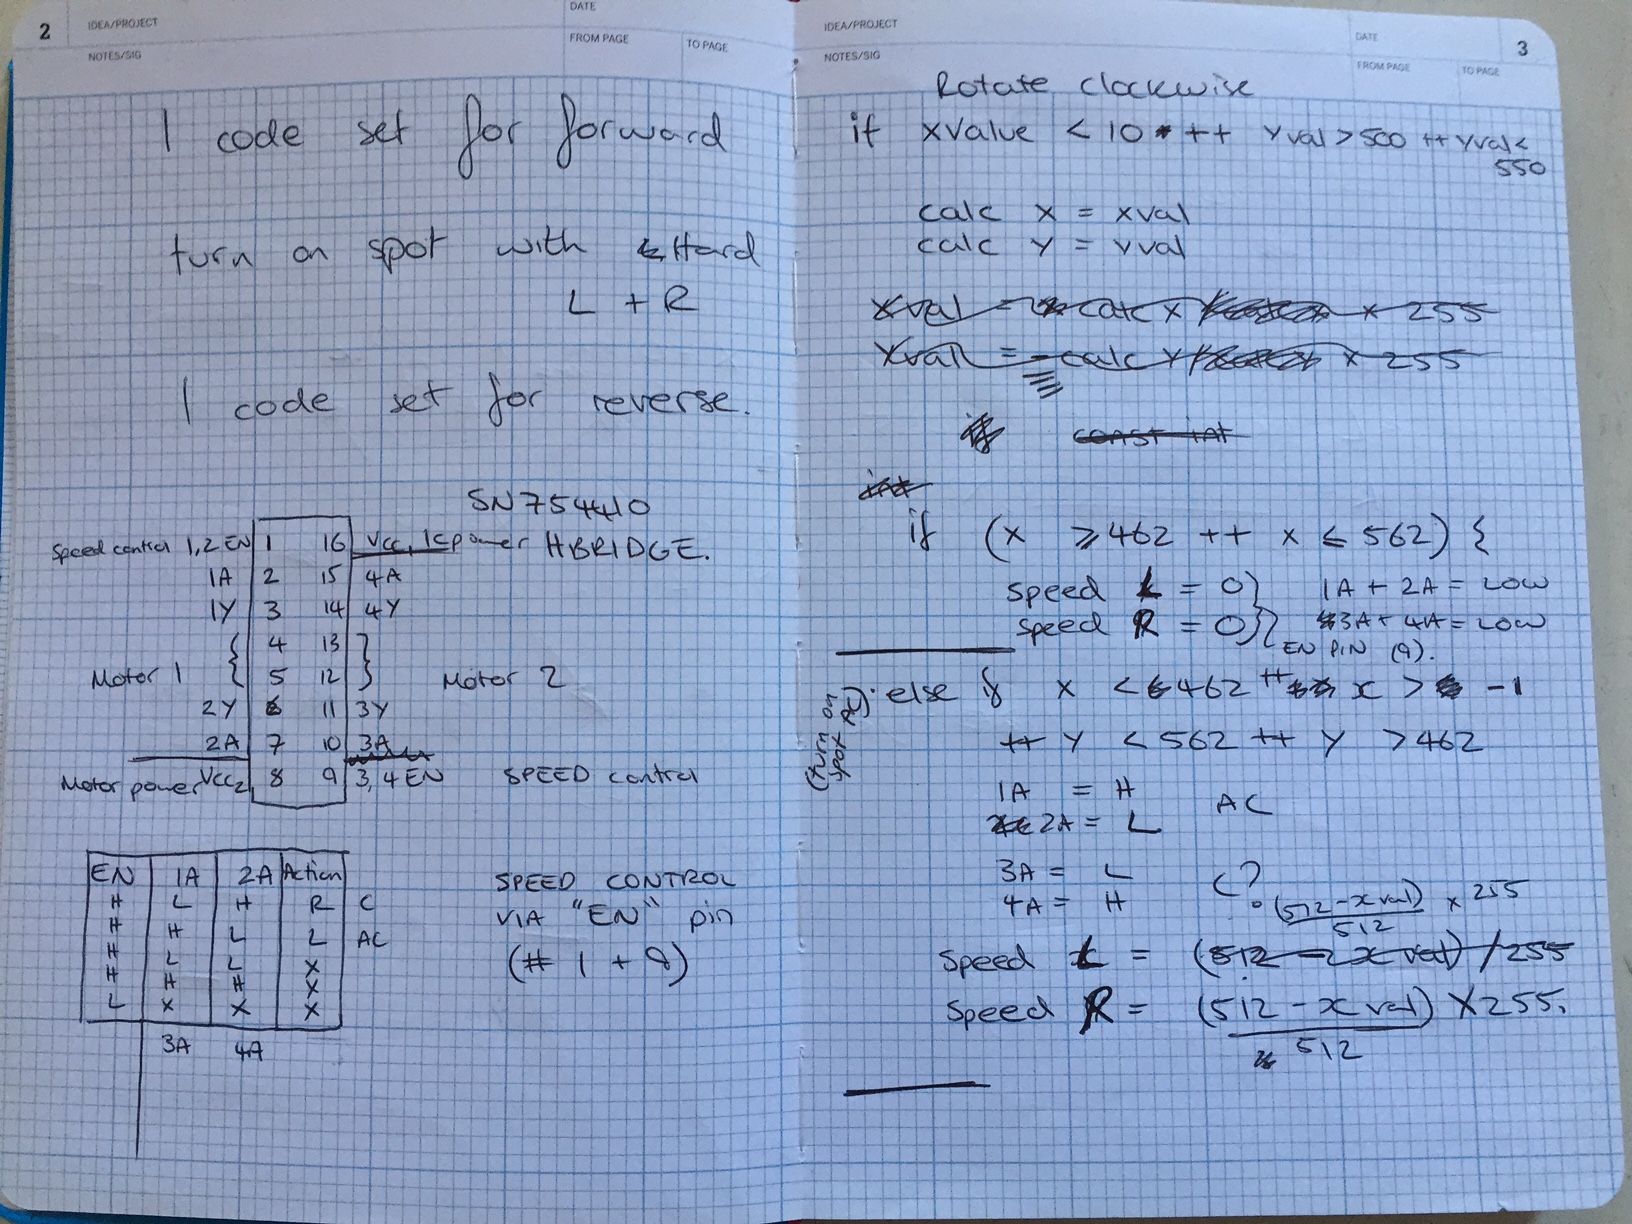 2
IDEA/PROJECT
DATE
NOTES/SIG
FROM PAGE
TO PAGE
1 code set for forward
turn on spot with Hard
L + R
1 code set for reverse.
SN754410
HBRIDGE.
Speed control 1,2 EN 1 16 Vcc, IC power
1A 2 15 4A
1Y 3 14 4Y
4 13
Motor 1 5 12 Motor 2
2Y 6 11 3Y
2A 7 10 3A
Motor power Vcc2 8 9 3,4 EN SPEED control
EN 1A 2A Action
H L H R C
H H L L AC
H L L X
H H H X
L X X X
3A 4A
SPEED CONTROL
VIA "EN" pin
(# 1 + 9)
IDEA/PROJECT
DATE
3
NOTES/SIG
FROM PAGE
TO PAGE
Rotate clockwise
if xvalue < 10 ++ Yval > 500 ++ Yval <
550
calc x = xval
calc Y = Yval
xval = calc x x 255
Yval = calc Y x 255
if const int
int
if (x ≥ 462 ++ x ≤ 562) {
speed L = 0 } 1A + 2A = LOW
speed R = 0 } 3A + 4A = LOW
EN PIN (9).
(turn on
spot AC)
else if x < 462 ++ x > -1
++ Y < 562 ++ Y > 462
1A = H
AC
2A = L
3A = L
C?
4A = H
(512 - x val) x 255
512
Speed L = (512 - x val) / 255
Speed R = (512 - x val) X 255.
512